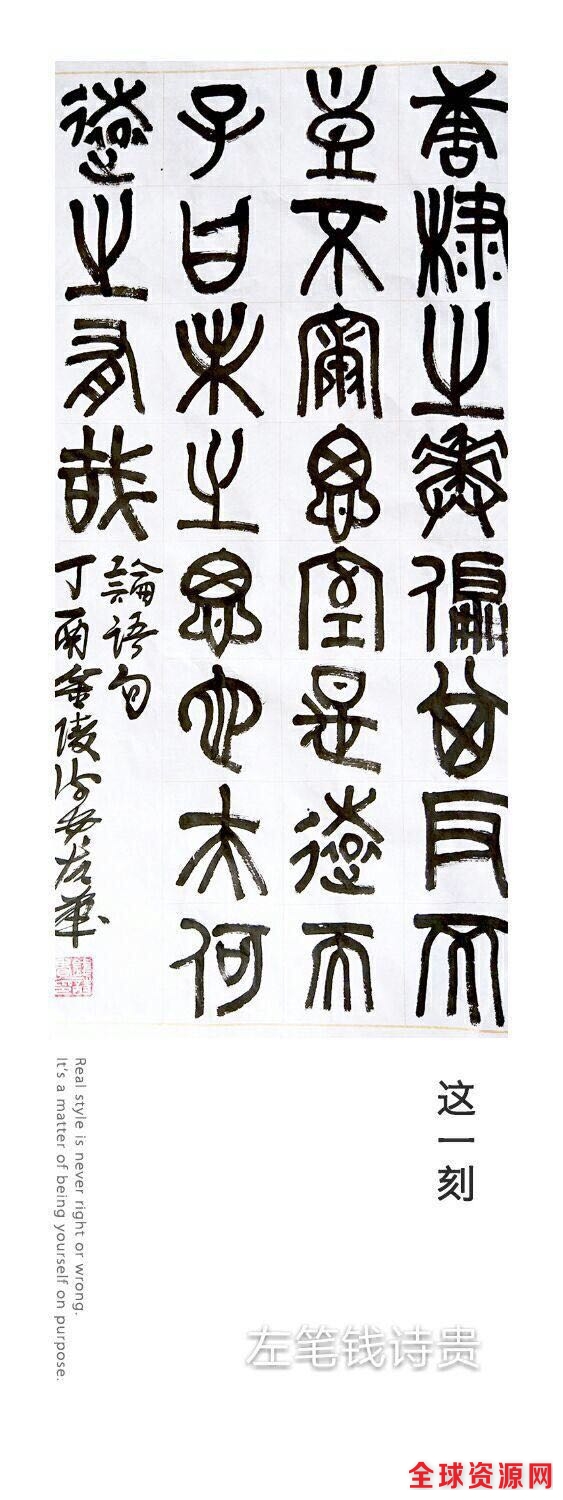 唐棣之華偏其反而
豈不爾思室是遠而
子曰未之思也夫何
遠之有哉
論語句
丁酉金陵诗貴左筆
这一刻
Real style is never right or wrong.
It's a matter of being yourself on purpose.
左笔钱诗贵
全球资源网